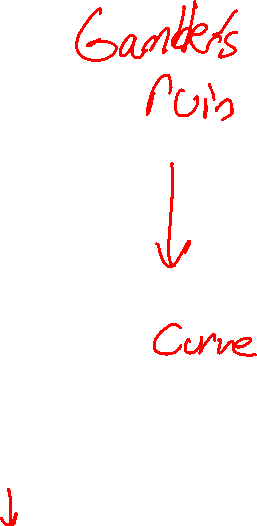 Gambler's
ruin
Curve